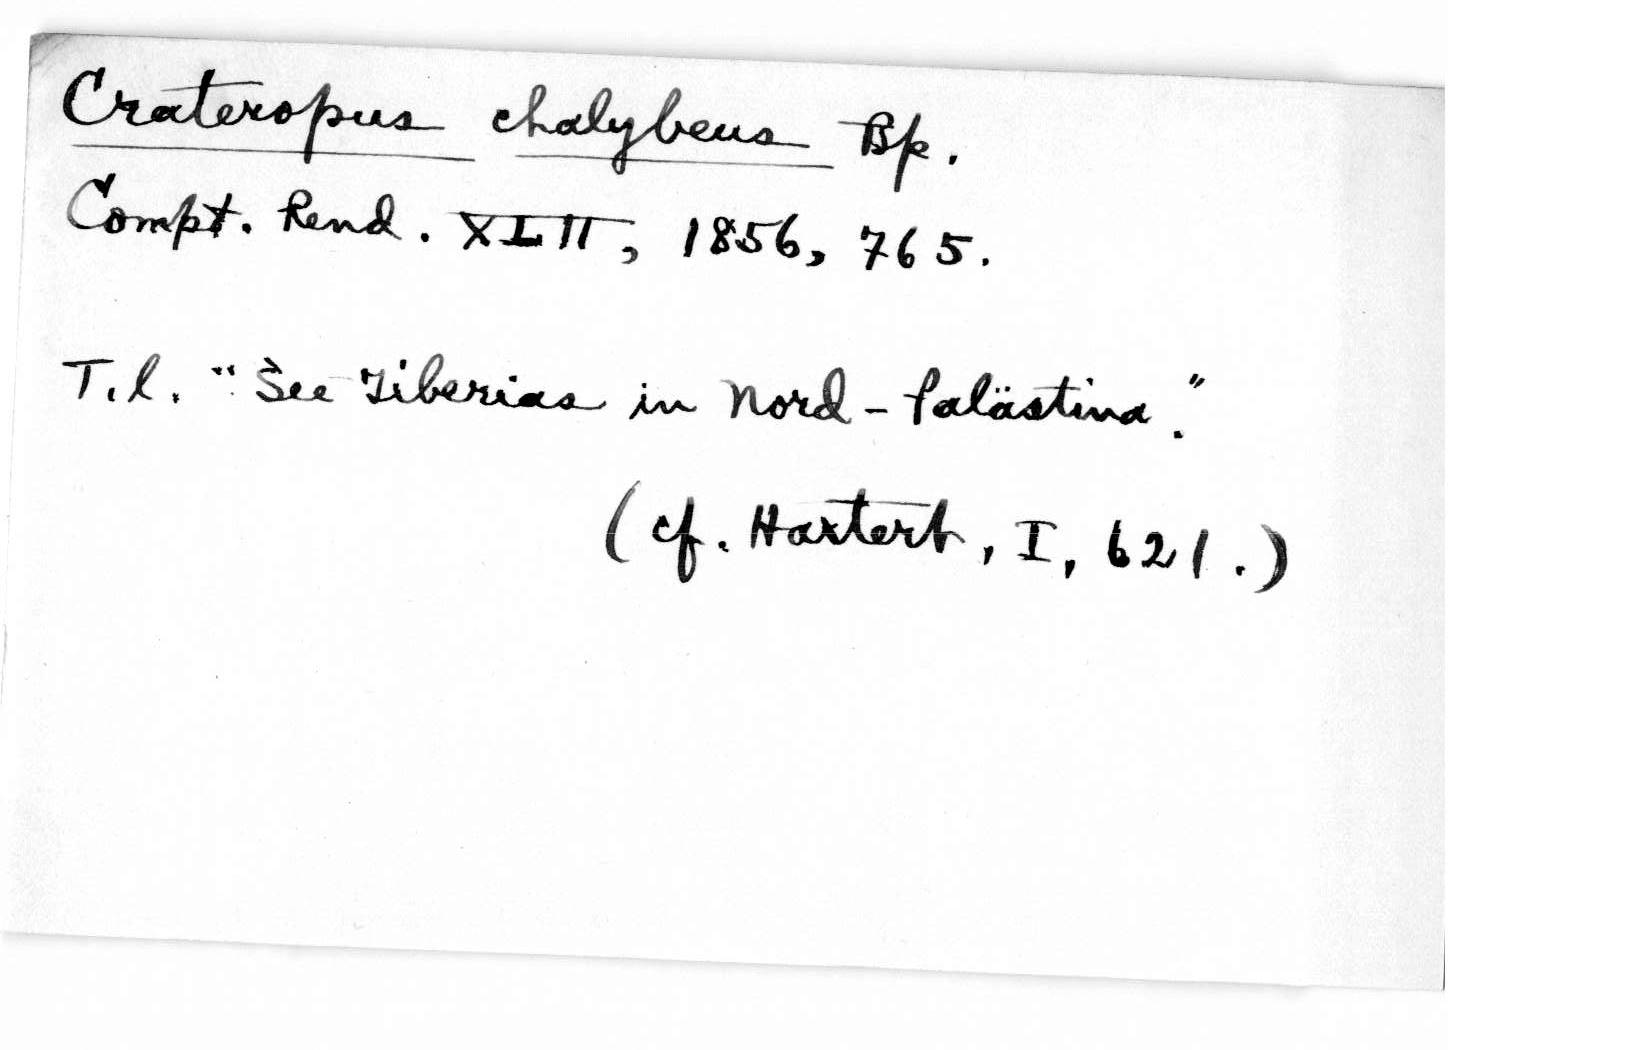 Crateropus chalybeus Bp.
Compt. Rend. XLII, 1856, 765.
T.l. "See Tiberias in Nord-Palästina."
(cf. Hartert, I, 621.)